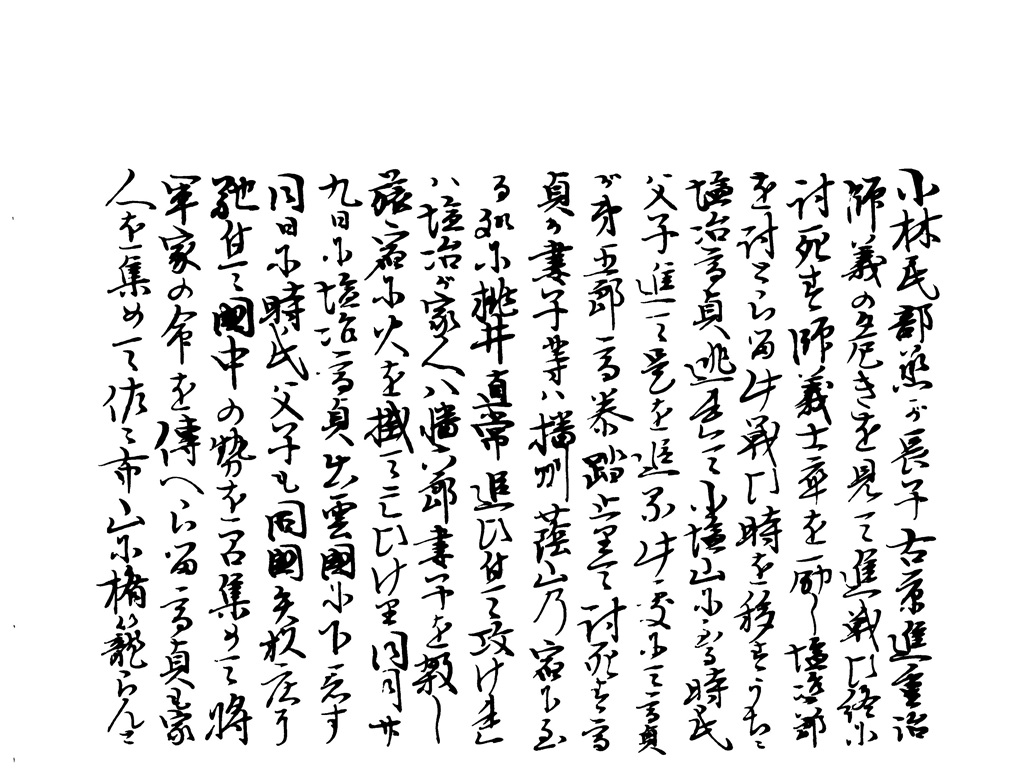 小林民部丞が長子古京進重治
師義の危きを見て進戦ひ終に
討死す師義士卒を励し塩冶郎
を討とらる此戦ひ時を移すうちに
塩冶高貞逃去て小塩山に至る時氏
父子進て是を追ふ此處にて高貞
が弟五郎高泰踏止りて討死す高
貞が妻子等ハ播州蔭山乃宿に至
る処に桃井直常追ひ付て攻けれ
ハ塩冶が家人八幡六郎妻子を殺し
蔭宿に火を掛て亡ひけり同月廿
九日に塩冶高貞出雲國に下着す
同日に時氏父子も同國矢杉庄に
馳付て國中の勢を召集めて将
軍家の命を傳へらる高貞も家
人を集めて佐々布山に楯籠らんと